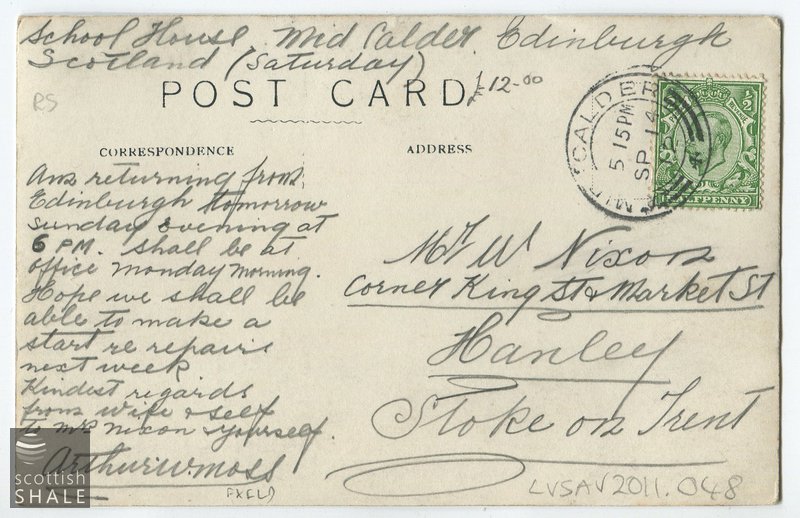 School House, Mid Calder. Edinburgh
Scotland (Saturday)
POST CARD
£12-00
RS
CORRESPONDENCE
ADDRESS
MID CALDER
5 15 PM
SP 14
1/2
HALFPENNY
Am returning from
Edinburgh tomorrow
Sunday evening at
6 PM. Shall be at
office Monday Morning.
Hope we shall be
able to make a
start re repairs
next week
Kindest regards
from wife & self
to Mrs Nixon & yourself.
Arthur W. Moss
Mr W Nixon
Corner King St & Market St
Hanley
Stoke on Trent
LVSAV2011.048
scottish
SHALE